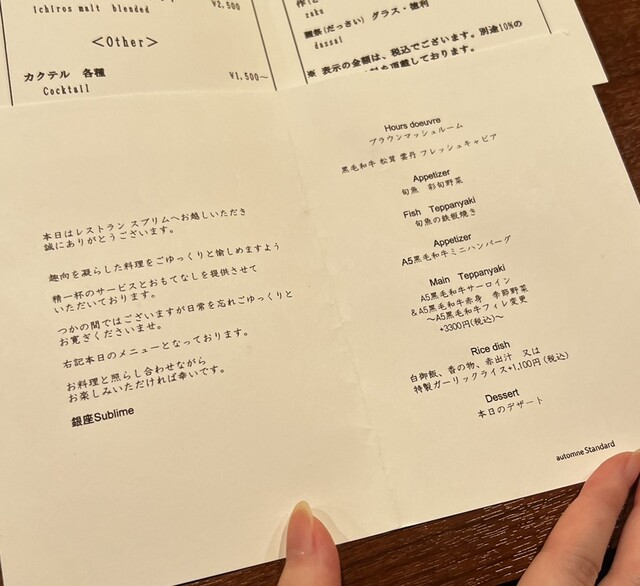 ichiros malt blended ¥2,500
<Other>
カクテル 各種 ¥1,500~
Cocktail
zaku
獺祭(だっさい) グラス・徳利
dassai
※ 表示の金額は、税込でございます。別途10%の
本日はレストラン スブリムへお越しいただき
誠にありがとうございます。
趣向を凝らした料理をごゆっくりと愉しめますよう
精一杯のサービスとおもてなしを提供させて
いただいております。
つかの間ではございますが日常を忘れごゆっくりと
お寛ぎくださいませ。
右記本日のメニューとなっております。
お料理と照らし合わせながら
お楽しみいただければ幸いです。
銀座Sublime
Hours doeuvre
ブラウンマッシュルーム
黒毛和牛 松茸 雲丹 フレッシュキャビア
Appetizer
旬魚 彩旬野菜
Fish Teppanyaki
旬魚の鉄板焼き
Appetizer
A5黒毛和牛ミニハンバーグ
Main Teppanyaki
A5黒毛和牛サーロイン
&A5黒毛和牛赤身 季節野菜
~A5黒毛和牛フィレ変更
+3300円(税込)~
Rice dish
白御飯、香の物、赤出汁 又は
特製ガーリックライス+1,100円(税込)
Dessert
本日のデザート
automne Standard